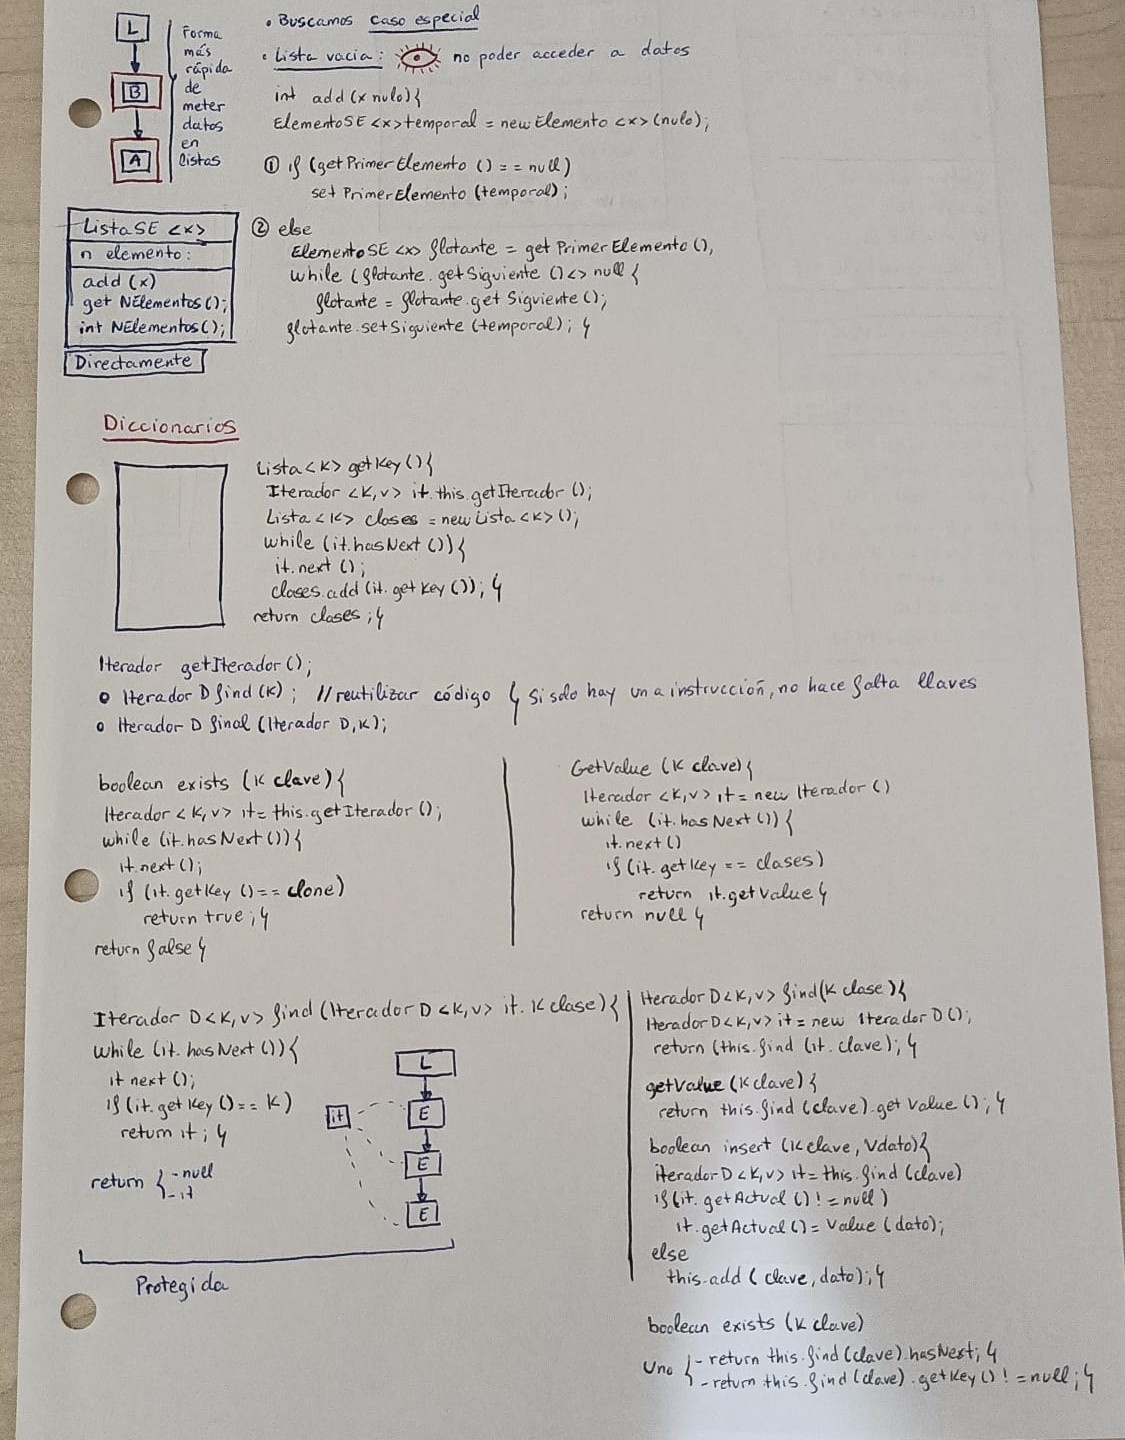 L
B
A
Forma
más
rápida
de
meter
datos
en
listas
• Buscamos caso especial
• Lista vacia: no poder acceder a datos
int add (x nulo){
ElementoSE <x> temporal = new Elemento <x> (nulo);
① if (getPrimerElemento () == null)
set PrimerElemento (temporal);
ListaSE <x>
n elemento:
add (x)
get NElementos();
int NElementos();
Directamente
② else
ElementoSE <x> flotante = get PrimerElemento (),
while (flotante.getSiguiente () <> null {
flotante = flotante.get Siguiente ();
flotante.setSiguiente (temporal); }
Diccionarios
Lista <K> getKey (){
Iterador <K,V> it.this.getIterador ();
Lista <K> clases = new Lista <K> ();
while (it.hasNext ()){
it.next ();
clases.add (it.getKey ()); }
return clases ; }
Iterador getIterador ();
• Iterador D find (K) ; //reutilizar código } Si solo hay una instrucción, no hace falta llaves
• Iterador D final (Iterador D, K);
boolean exists (K clave) {
Iterador <K,V> it= this.getIterador ();
while (it.hasNext ()){
it.next ();
if (it.getKey () == clone)
return true ; }
return false }
GetValue (K clave) {
Iterador <K,V> it = new Iterador ()
while (it.hasNext ()) {
it.next ()
if (it.getKey == clases)
return it.getValue }
return null }
Iterador D<K,V> find (Iterador D <K,V> it. K clase) {
while (it.hasNext ()){
it next ();
if (it.getKey () == K)
return it ; }
return { -null
-it
it
L
E
E
E
Protegida
Iterador D<K,V> find (K clase) {
Iterador D<K,V> it = new Iterador D ();
return (this.find (it.clave); }
getValue (K clave) {
return this.find (clave).get Value (); }
boolean insert (K clave, V dato){
iterador D<K,V> it = this.find (clave)
if (it.getActual () != null )
it.getActual () = Value (dato);
else
this.add ( clave, dato); }
boolean exists (K clave)
Uno { - return this.find (clave).hasNext; }
- return this.find (clave).getKey () != null ; }